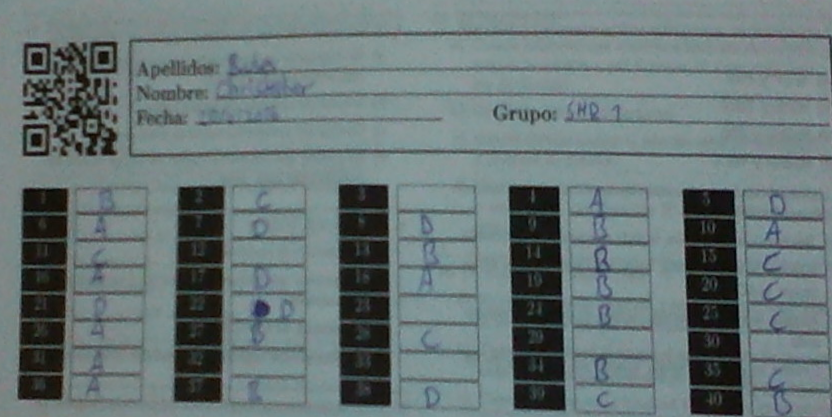 Apellidos:
Nombre: Christopher
Fecha:
Grupo: SHR 1
1 B 2 C 3 4 A 5 D
6 A 7 D 8 D 9 B 10 A
11 C 12 13 B 14 B 15 C
16 A 17 D 18 A 19 B 20 C
21 D 22 D 23 24 B 25 C
26 A 27 B 28 C 29 30
31 A 32 33 34 B 35 C
36 A 37 B 38 D 39 C 40 B